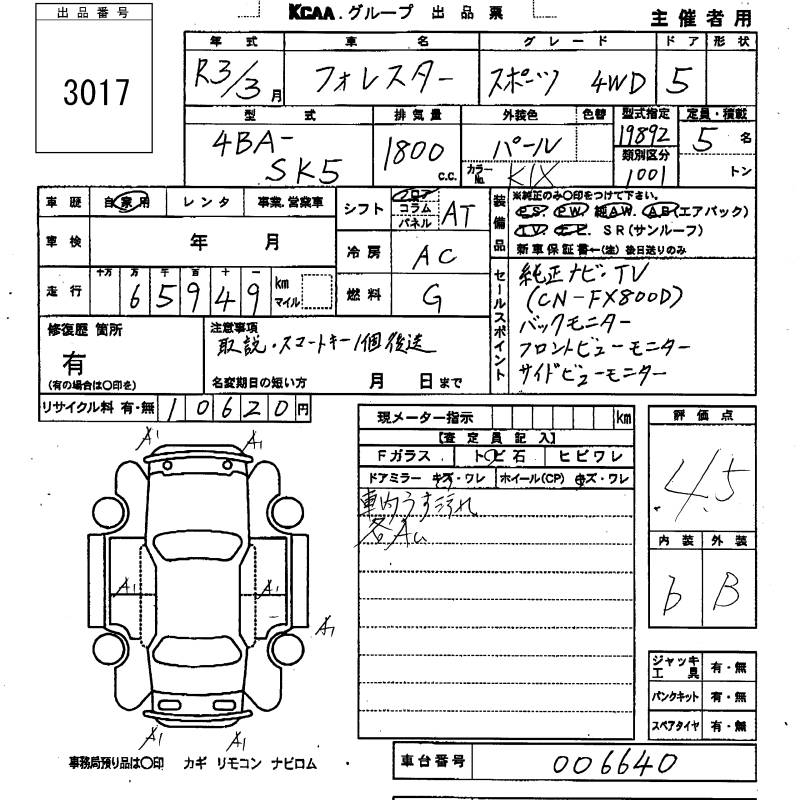 出品番号
3017
KCAA.グループ 出品票
主催者用
年式 車名 グレード ドア 形状
R3/3月 フォレスター スポーツ 4WD 5
型式 排気量 外装色 色替 型式指定 定員・積載
4BA-SK5 1800 c.c. パール 19892 5名
カラーNo. K1X 類別区分 1001 トン
車歴 自家用 レンタ 事業.営業車
シフト フロア コラム パネル AT
車検 年 月
冷房 AC
走行 十万 万 千 百 十 一 km マイル
65949
燃料 G
装備品
※純正のみ○印をつけて下さい。
PS. PW. 純AW. AB(エアバック)
TV. ナビ. SR(サンルーフ)
新車保証書←(注) 後日送りのみ
セールスポイント
純正ナビ・TV
(CN-FX800D)
バックモニター
フロントビューモニター
サイドビューモニター
修復歴 箇所
有
(有の場合は○印を)
注意事項
取説・スマートキー1個後送
名変期日の短い方 月 日まで
リサイクル料 有・無 10620円
現メーター指示 km
【査定員記入】
Fガラス トビ石 ヒビワレ
ドアミラー キズ・ワレ ホイール(CP) キズ・ワレ
車内うす汚れ
各A
評価点
4.5
内装 外装
b B
A1 A1
A1 A1
A1
A1 A1
ジャッキ工具 有・無
パンクキット 有・無
スペアタイヤ 有・無
事務局預り品は○印 カギ リモコン ナビロム
車台番号 006640